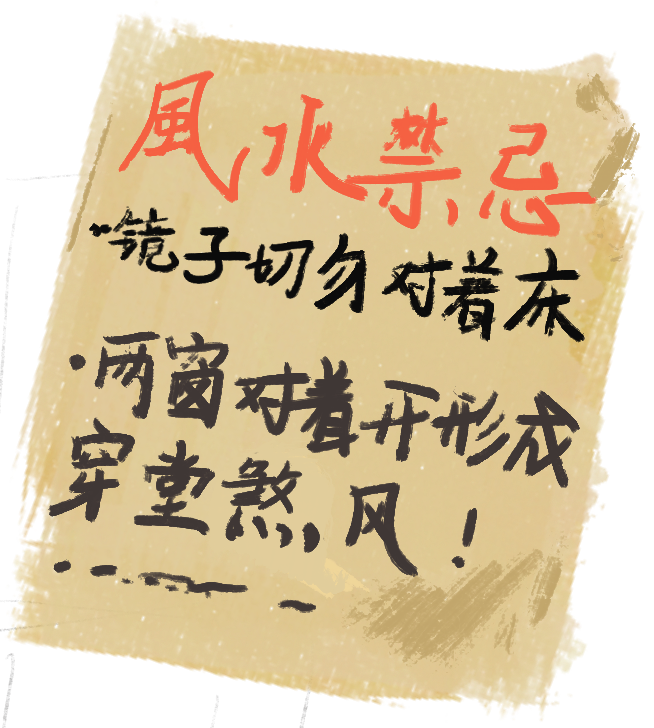 風水禁忌
·镜子切勿对着床
·两窗对着开形成
穿堂煞风！